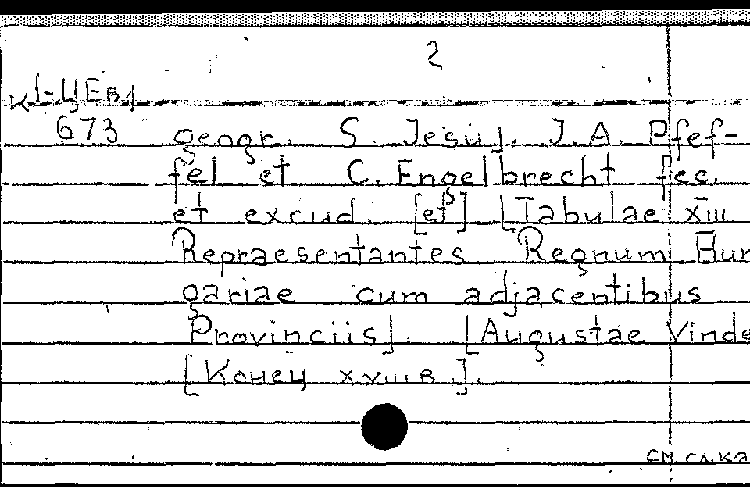 2
К1-ЦЕв1
673 geogr. S. Jesu]. J.A. Pfef-
fel et C. Engelbrecht fec.
et excud. [et] [Tabulae XIII
Repraesentantes Regnum Hun
gariae cum adjacentibus
Provinciis]. [Augustae Vinde
[Конец XVIII в.].
см. сл. ка